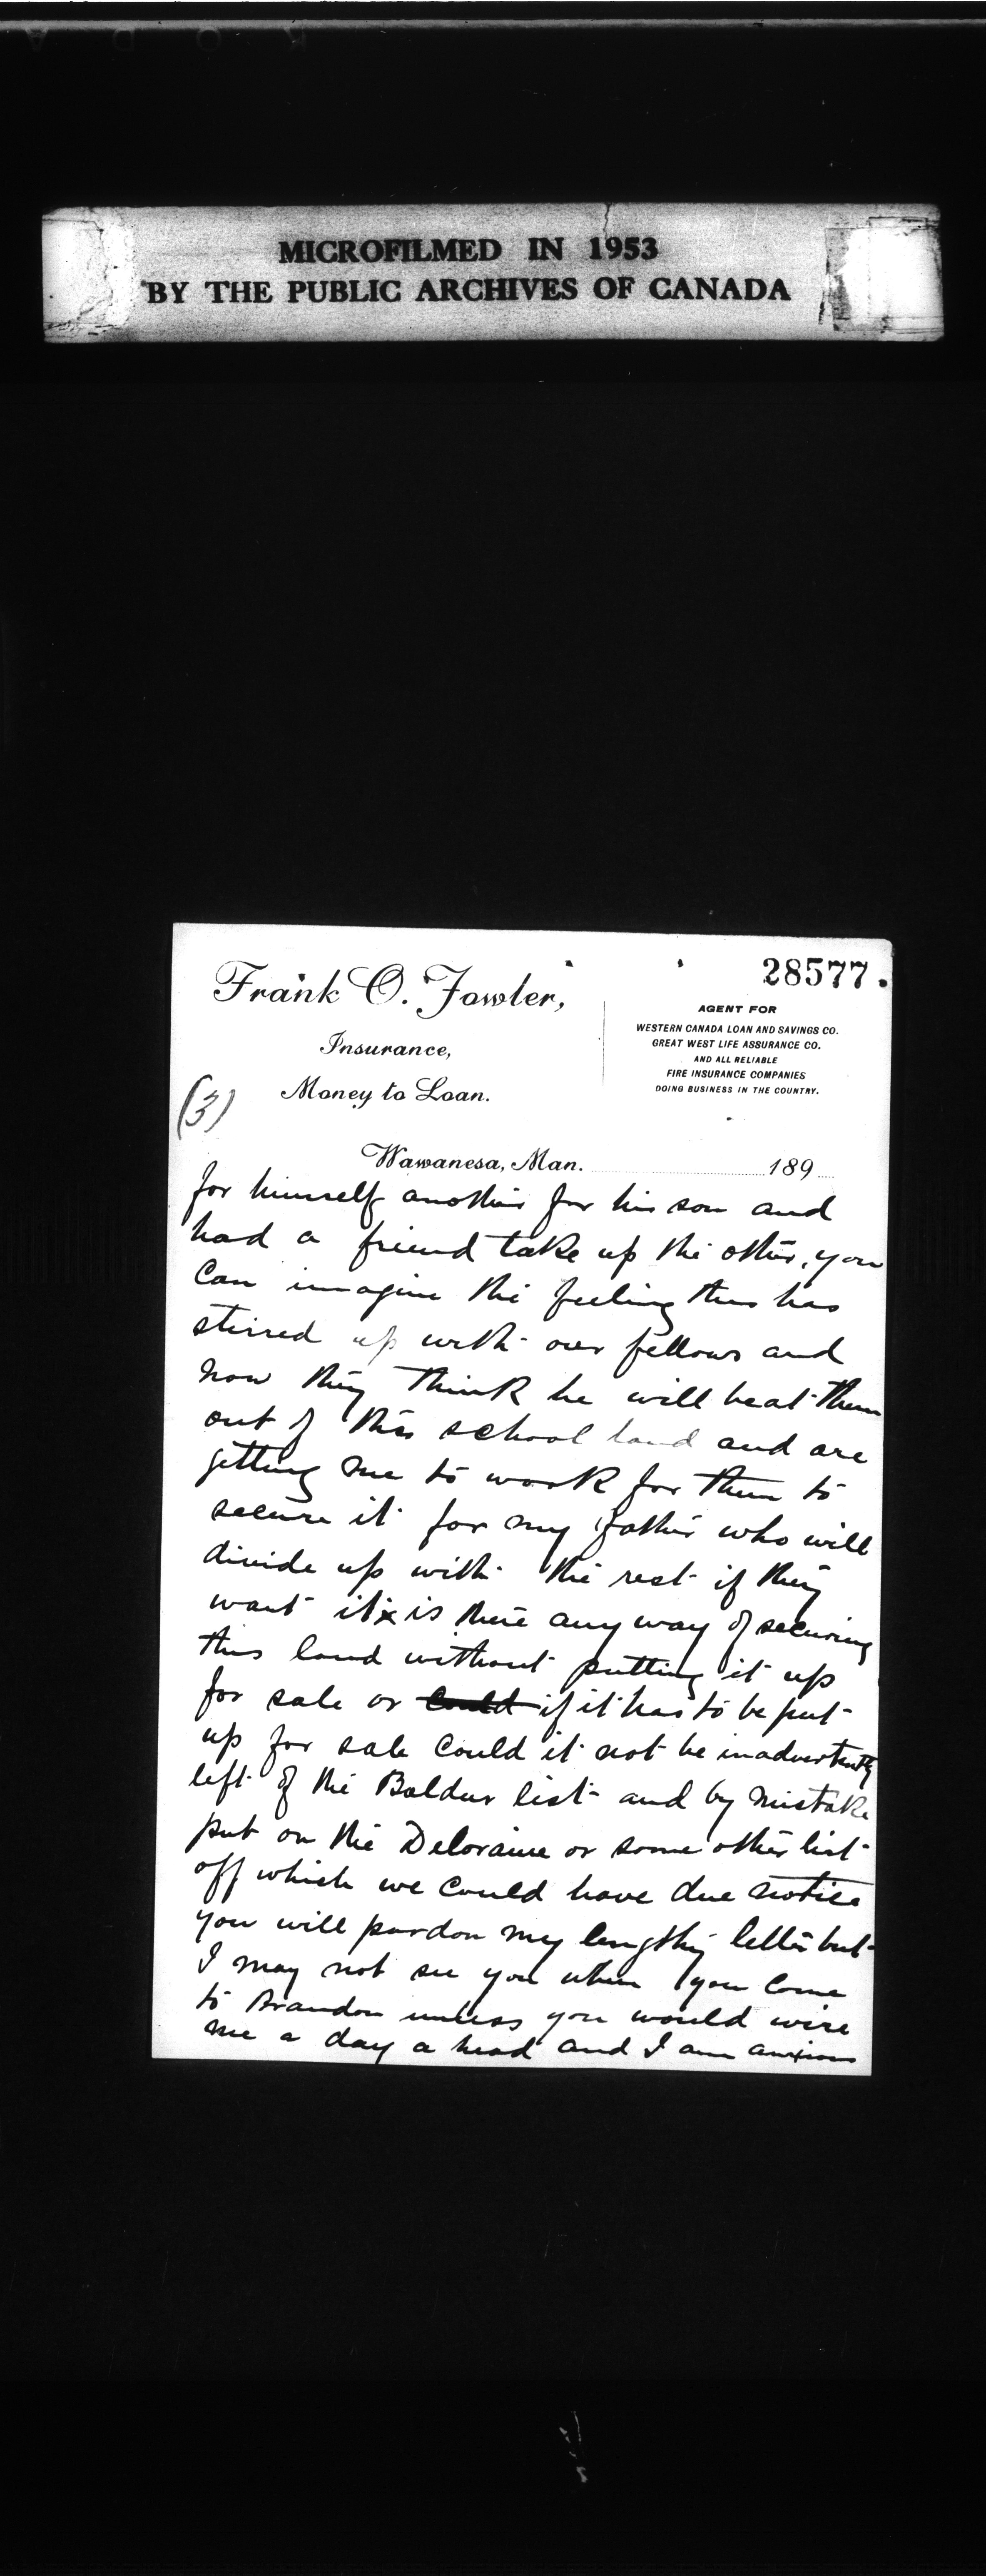 MICROFILMED IN 1953
BY THE PUBLIC ARCHIVES OF CANADA
28577.
Frank O. Fowler,
Insurance,
Money to Loan.
AGENT FOR
WESTERN CANADA LOAN AND SAVINGS CO.
GREAT WEST LIFE ASSURANCE CO.
AND ALL RELIABLE
FIRE INSURANCE COMPANIES
DOING BUSINESS IN THE COUNTRY.
(3)
Wawanesa, Man. 189
for himself another for his son and
had a friend take up the other, you
can imagine the feeling this has
stirred up with our fellows and
now they think he will beat them
out of this school land and are
getting me to work for them to
secure it for my father who will
divide up with the rest if they
want it x is there any way of securing
this land without putting it up
for sale or could if it has to be put
up for sale could it not be inadvertently
left of the Baldur list and by mistake
put on the Deloraine or some other list
off which we could have due notice
you will pardon my lengthy letter but
I may not see you when you come
to Brandon unless you would wire
me a day a head and I am anxious